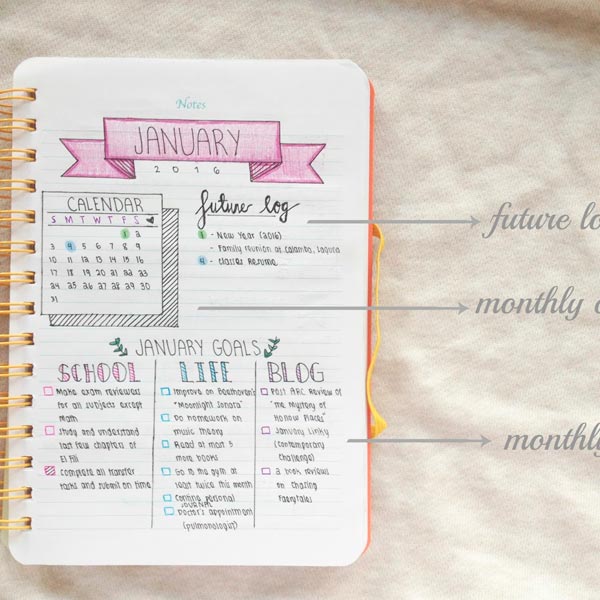 Notes
JANUARY
2016
CALENDAR
S M T W T F S
1 2
3 4 5 6 7 8 9
10 11 12 13 14 15 16
17 18 19 20 21 22 23
24 25 26 27 28 29 30
31
future log
1 - New Year (2016)
- Family Reunion at Calamba, Laguna
4 - Classes Resume
future lo
monthly
JANUARY GOALS
SCHOOL
Make exam reviewers
for all subjects except
math
Study and understand
last few chapters of
El Fili
Complete all transfer
tasks and submit on time
LIFE
Improve on Beethoven's
"Moonlight Sonata"
Do homework on
music theory
Read at most 5
more books
Go to the gym at
least twice this month
personal
JOURNAL
Doctor's appointment
(pulmonologist)
BLOG
Post ARC Review of
"The Mystery of
Hollow Places"
January Linky
(Contemporary
Challenge)
2 book reviews
on Chasing
Faerytales
monthly